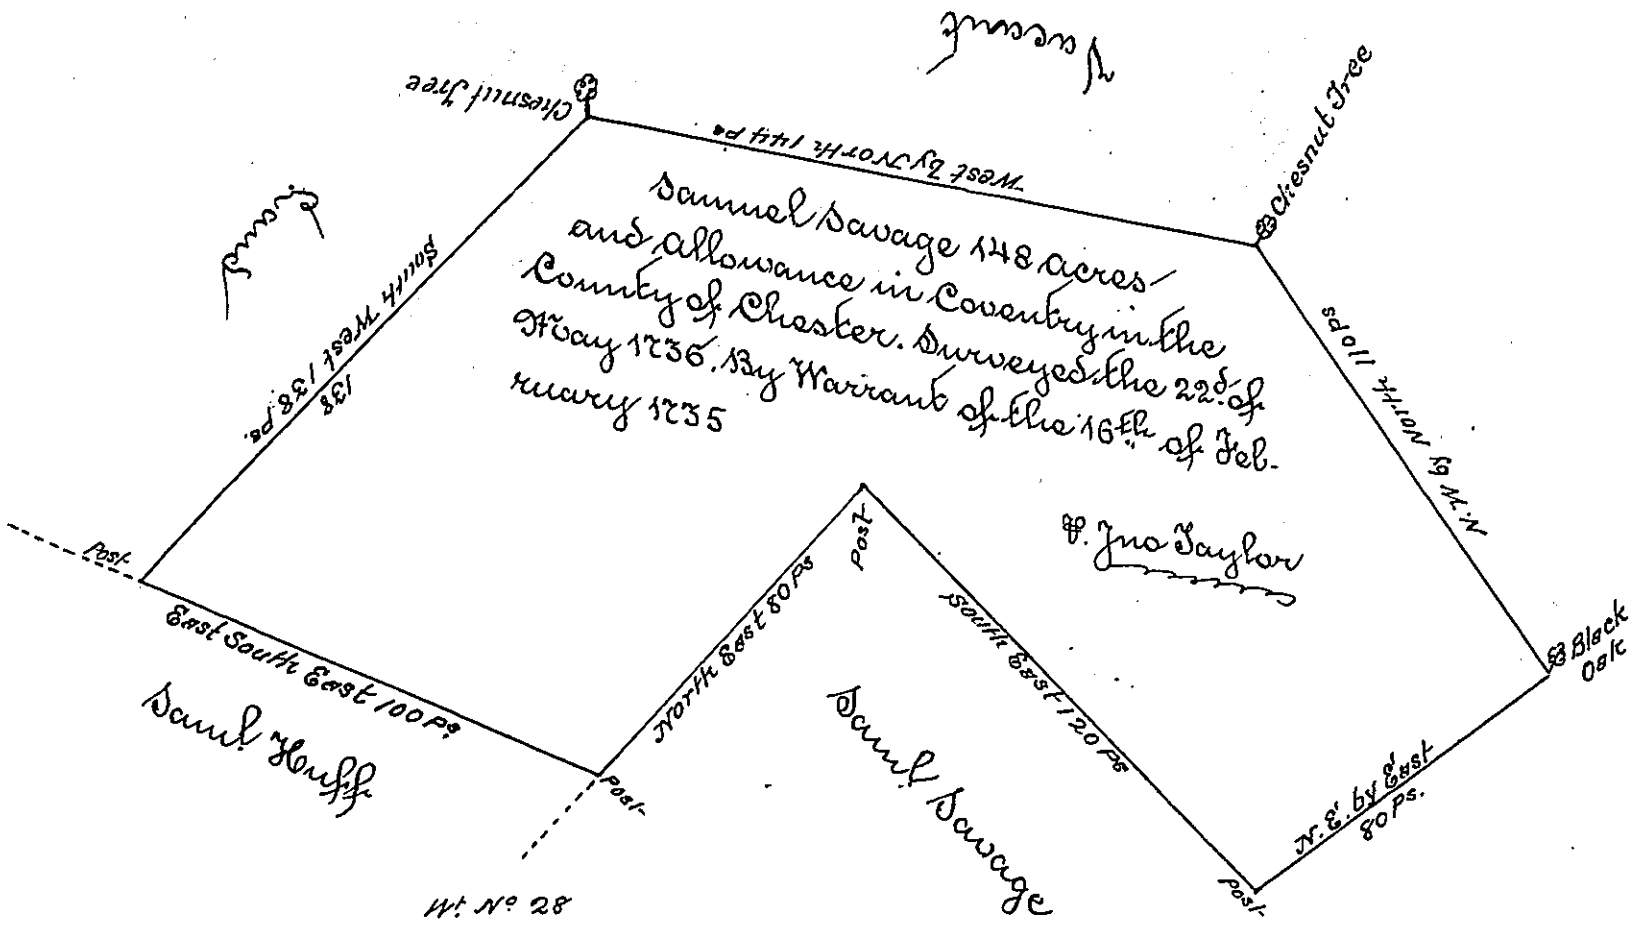 Vacant
Chesnut Tree
Chesnut Tree
West by North 144 Ps
Vacant
South West 138 ps.
138
Samuel Savage 148 acres
and allowance in Coventry in the
County of Chester. Surveyed the 22d. of
May 1736. By Warrant of the 16th of Feb-
ruary 1735
N.W by North 110ps
P. Jno Taylor
Post
Post
East South East 100 Ps.
North East 80 Ps
South East 120 Ps
Black
Oak
Saml. Huff
Saml. Savage
Post
N.E. by East
80 Ps.
Post
Wt. No 28